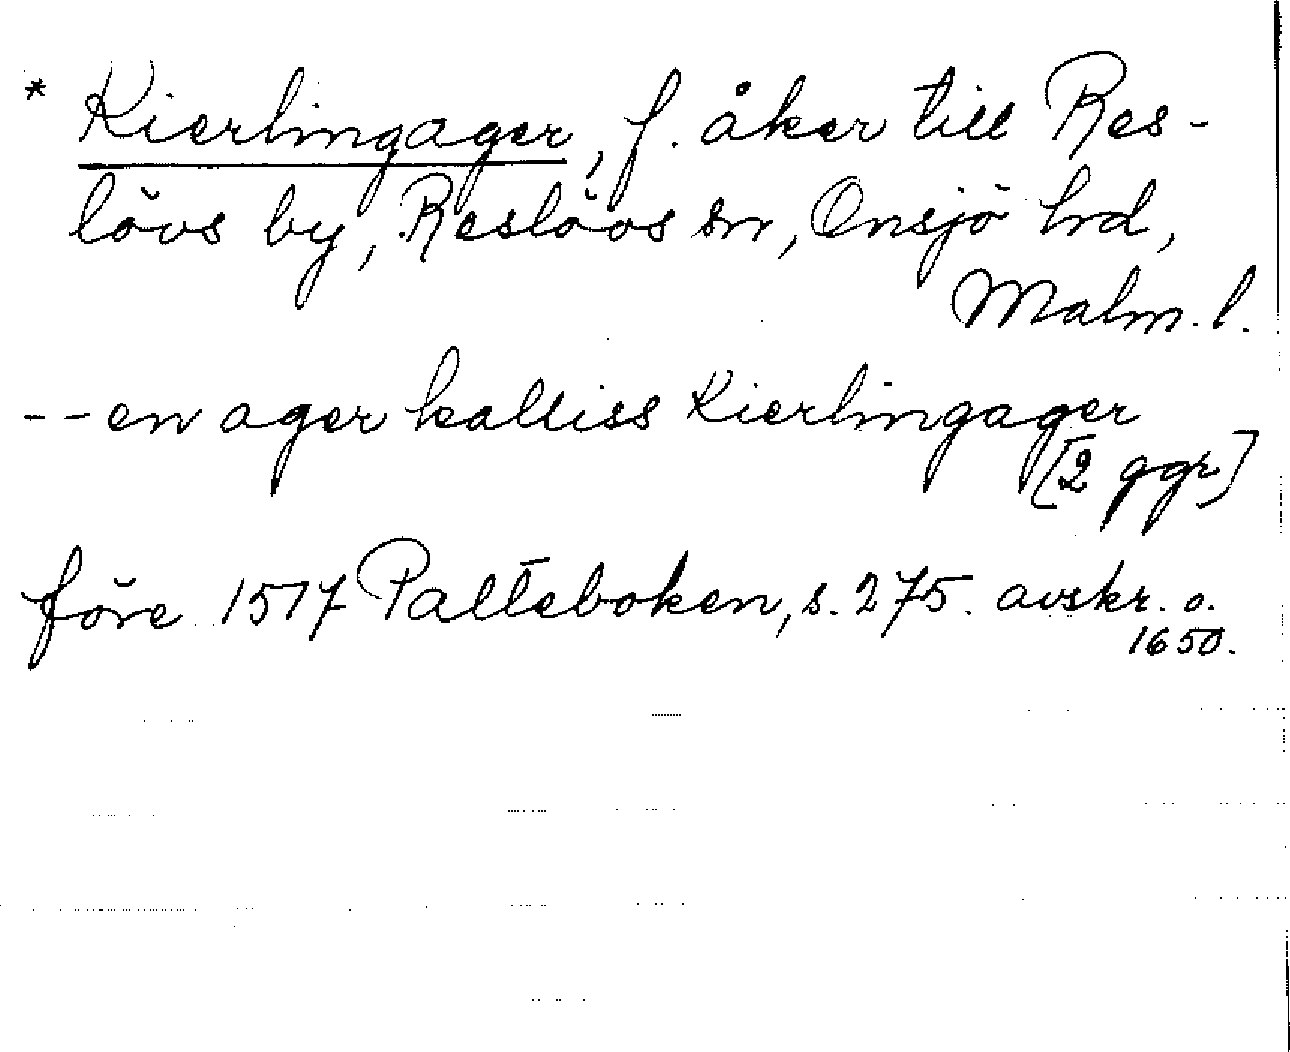 * Kierlingager, f. åker till Res-
lövs by, Reslövs sn, Onsjö hrd,
Malm. l.
-- en ager kalliss Kierlingager
[2 ggr]
före 1517 Palteboken, s. 275. avskr. o.
1650.